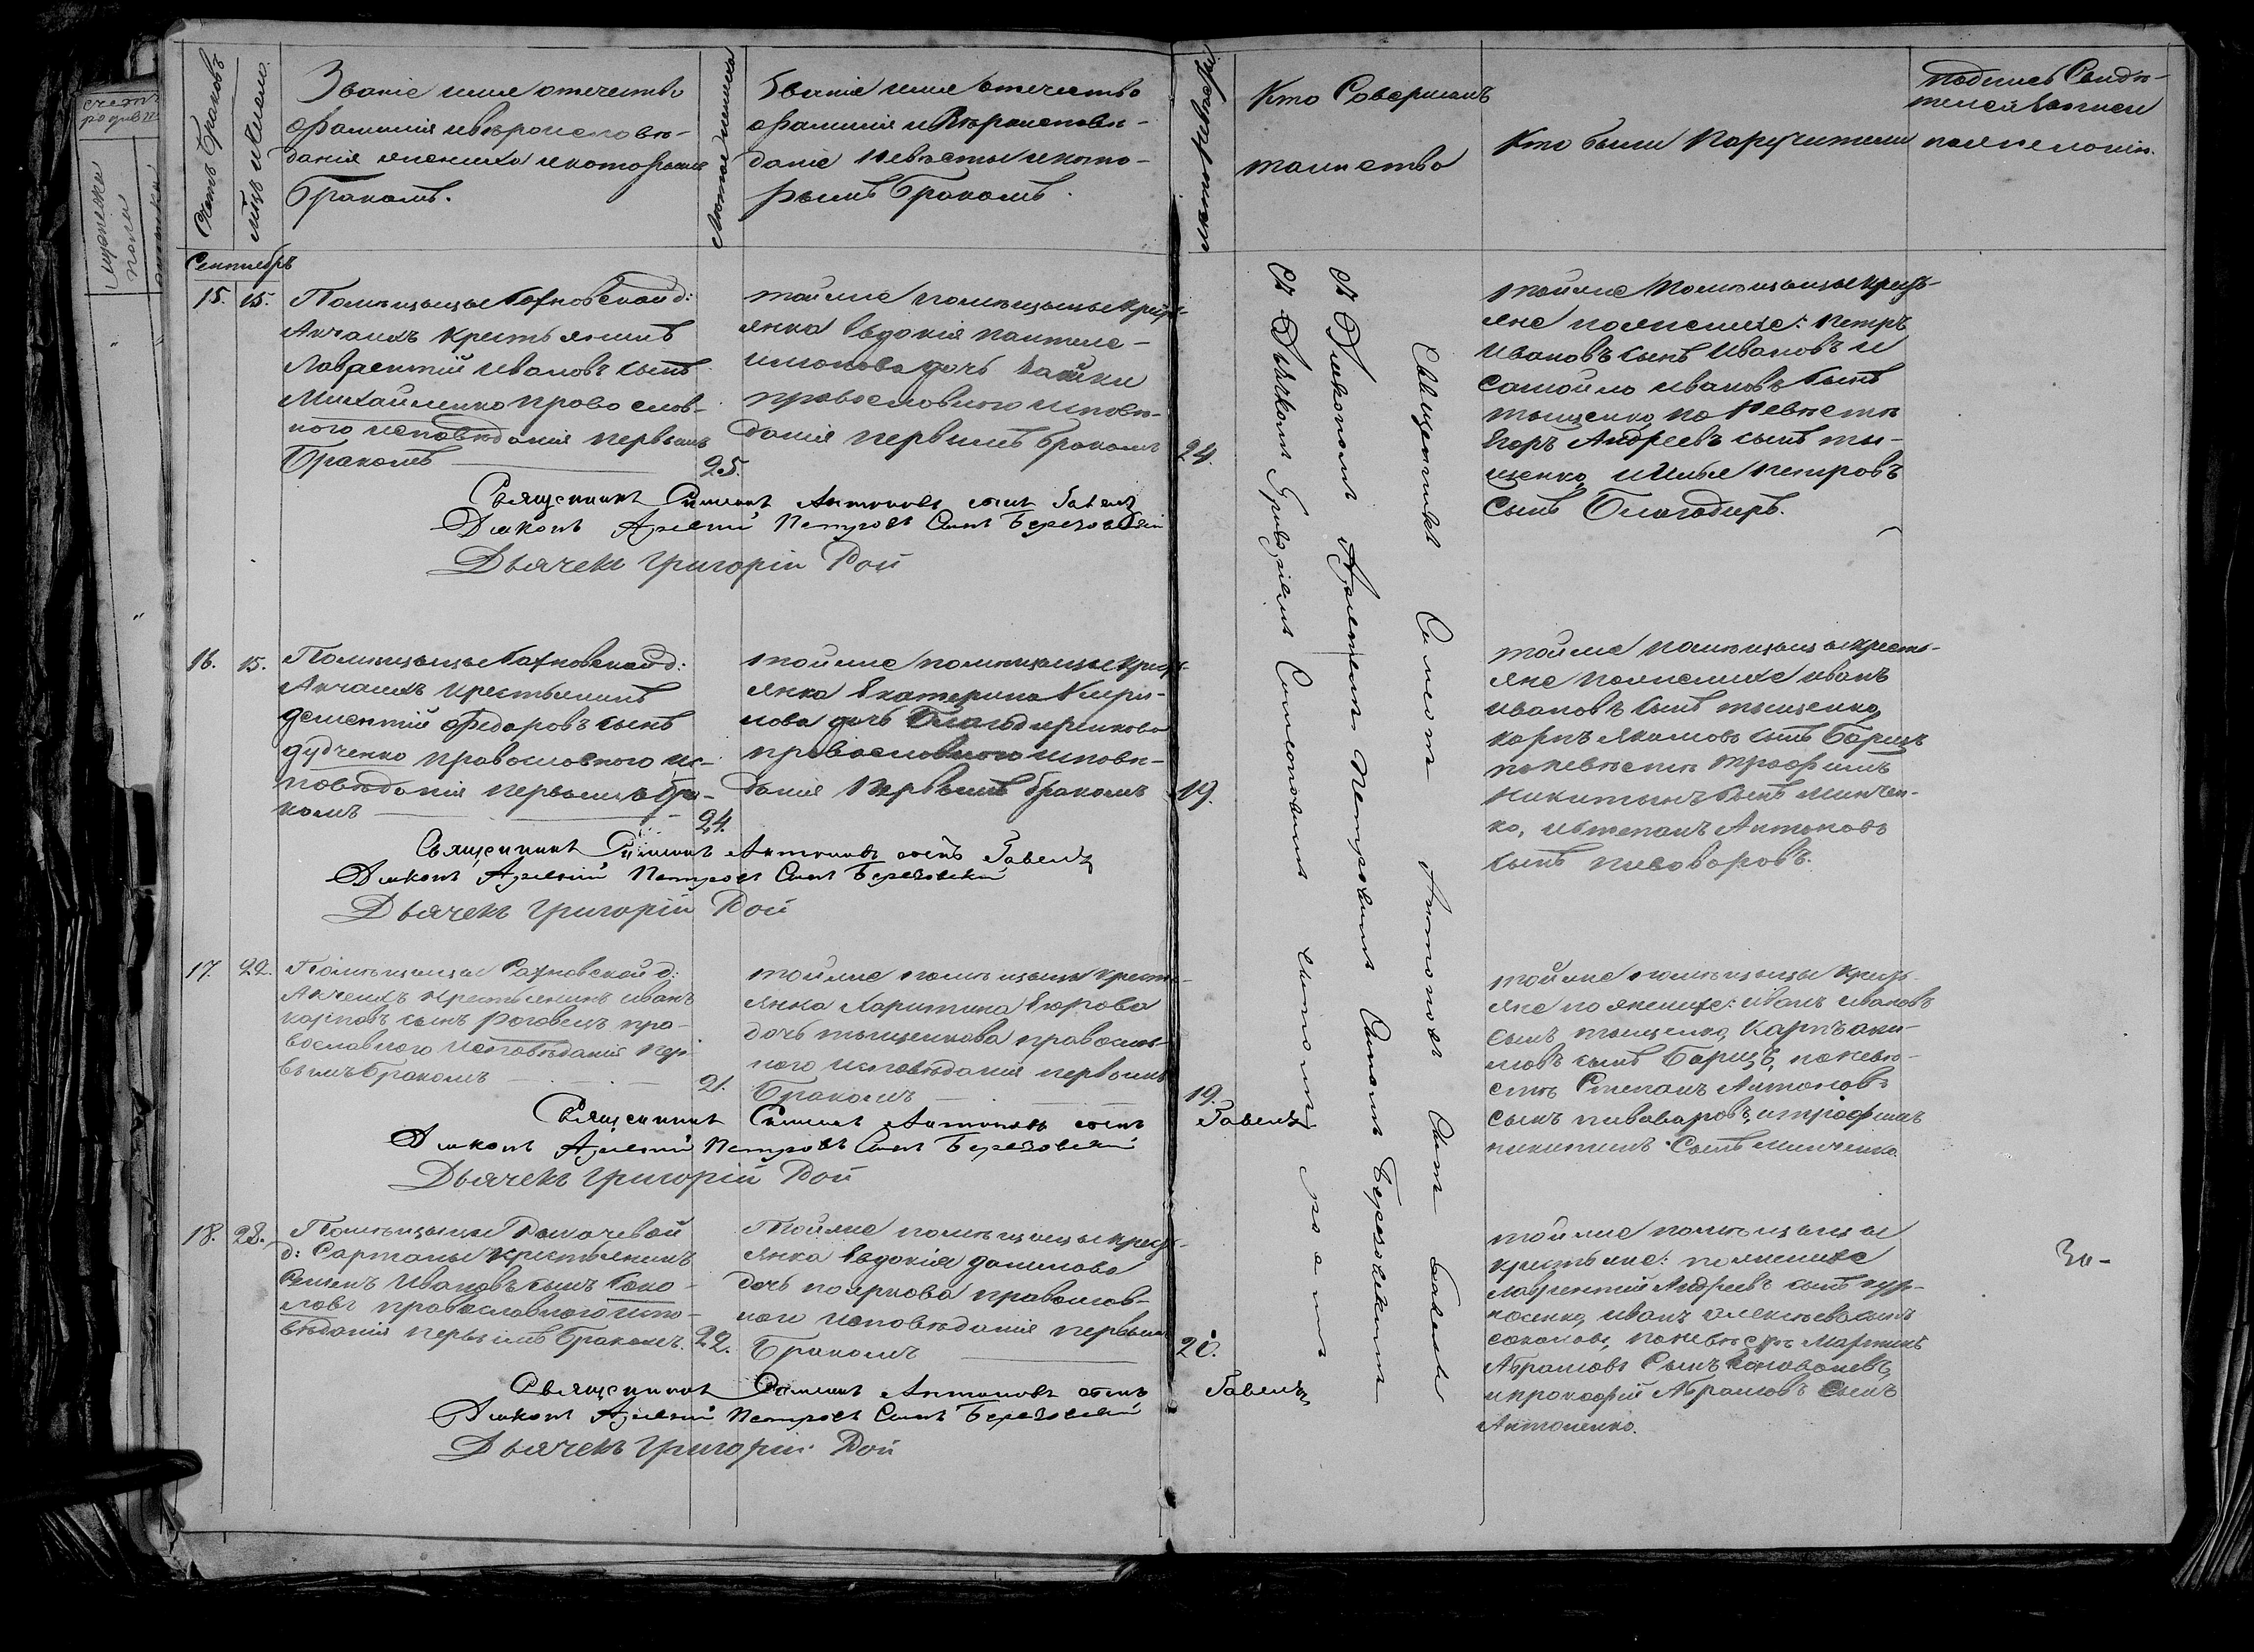 Счетъ Браковъ
Мѣц. и Число.
Званіе имя отечество
фамилія и вѣроисповѣ-
данія жениха и которымъ
бракомъ.
Лѣта жениха
Званіе имя отечество
фамилія и Вѣроисповѣ-
даніе Невѣсты и кото-
рымъ бракомъ.
Лѣта невѣсты
Кто Совершалъ
таинство
Кто были Поручители
подпись Свидѣ-
телей записи
по желонію.
Сентебръ
15. 15.
Помѣщыцы Бахновской д:
Анчаихъ крестьянинъ
Лаврентій Ивановъ сынъ
Михайленко провослов-
ного исповѣдонія первымъ
Бракомъ
25.
тойже помѣщыцы крест-
янка Евдокія пантеле-
имонова дочь
православного исповѣ-
данія первымъ бракомъ
24.
тойже помѣщыцы крест-
яне пояженихе: Петръ
Ивановъ сынъ Ивановъ и
Самойло Ивановъ сынъ
тыщенко, по Невѣстѣ
Егоръ Андреевъ сынъ ты-
щенко, и Илья Петровъ
Сынъ Благодиръ.
Священникъ Симеонъ Антоновъ сынъ Гавелъ
Диаконъ Арсеній Петровъ Сынъ Березовскій
Дьячекъ Григорій Рой
16. 15.
Помѣщыцы Бахновской д:
Анчаихъ крестьянинъ
Дементій Федоровъ сынъ
Дудченко православного ис-
повѣданія первымъ бра-
комъ
24.
тойже помѣщыцы крест-
янка Екатерина Кири-
лова дочь Благодиренкова
православного исповѣ-
данія Первымъ бракомъ
19.
тойже помѣщыцы кресть-
яне пояженихе Иванъ
Ивановъ сынъ тыщенко,
карпъ Якимовъ сынъ Борщъ
по невѣстѣ трофимъ
никитинъ сынъ минчен-
ко, и степанъ Антоновъ
сынъ пивоваровъ.
Священникъ Симеонъ Антоновъ сынъ Гавелъ
Диаконъ Арсеній Петровъ Сынъ Березовскій
Дьячекъ Григорій Рой
17. 22.
Помѣщыцы Бахновской д:
Анчаихъ крестьянинъ Иванъ
карповъ сынъ Роговецъ пра-
вославного исповѣданія пер-
вымъ бракомъ
21.
тойже помѣщыцы крест-
янка Харитина Егорова
дочь тыщенкова православ-
ного исповѣданія первымъ
Бракомъ
19.
тойже помѣщыцы крест-
яне по яженихе: Иванъ Ивановъ
сынъ тыщенко, Карпъ аки-
мовъ сынъ Борщъ, по невѣ-
стѣ Степанъ Антоновъ
сынъ пивоваровъ, и трофимъ
никитинъ Сынъ минченко.
Священникъ Симеонъ Антоновъ сынъ Гавелъ
Диаконъ Арсеній Петровъ Сынъ Березовскій
Дьячекъ Григорій Рой
18. 22.
Помѣщыцы
д: Сартаны крестьянинъ
Ивановъ сынъ Соко-
ловъ православного испо-
вѣданія первымъ бракомъ.
22.
Тойже помѣщыцы крест-
янка Евдокія данилова
дочь пояркова православ-
ного исповѣданія первымъ
Бракомъ
20.
тойже помѣщыцы
крестьяне: пояженихе
Лаврентій Андреевъ сынъ
Иванъ алексѣевъ сынъ
соколовъ, по невѣстѣ Мартинъ
Абрамовъ Сынъ Коноваловъ,
и прокофій Абрамовъ Сынъ
Антоненко.
30-
Священникъ Симеонъ Антоновъ сынъ Гавелъ
Диаконъ Арсеній Петровъ Сынъ Березовскій
Дьячекъ Григорій Рой
Священникъ Симеонъ Антоновъ Сынъ Гавелъ
съ Диакономъ Арсеніемъ Петровымъ Сыномъ Березовскимъ
съ Дьячкомъ Григоріемъ Симеоновымъ сыномъ Роемъ